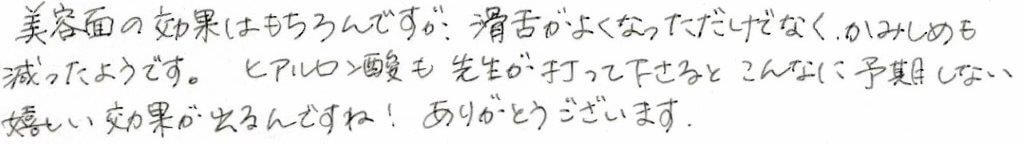 美容面の効果はもちろんですが、滑舌がよくなっただけでなく、かみしめも
減ったようです。 ヒアルロン酸も先生が打って下さるとこんなに予期しない
嬉しい効果が出るんですね! ありがとうございます.